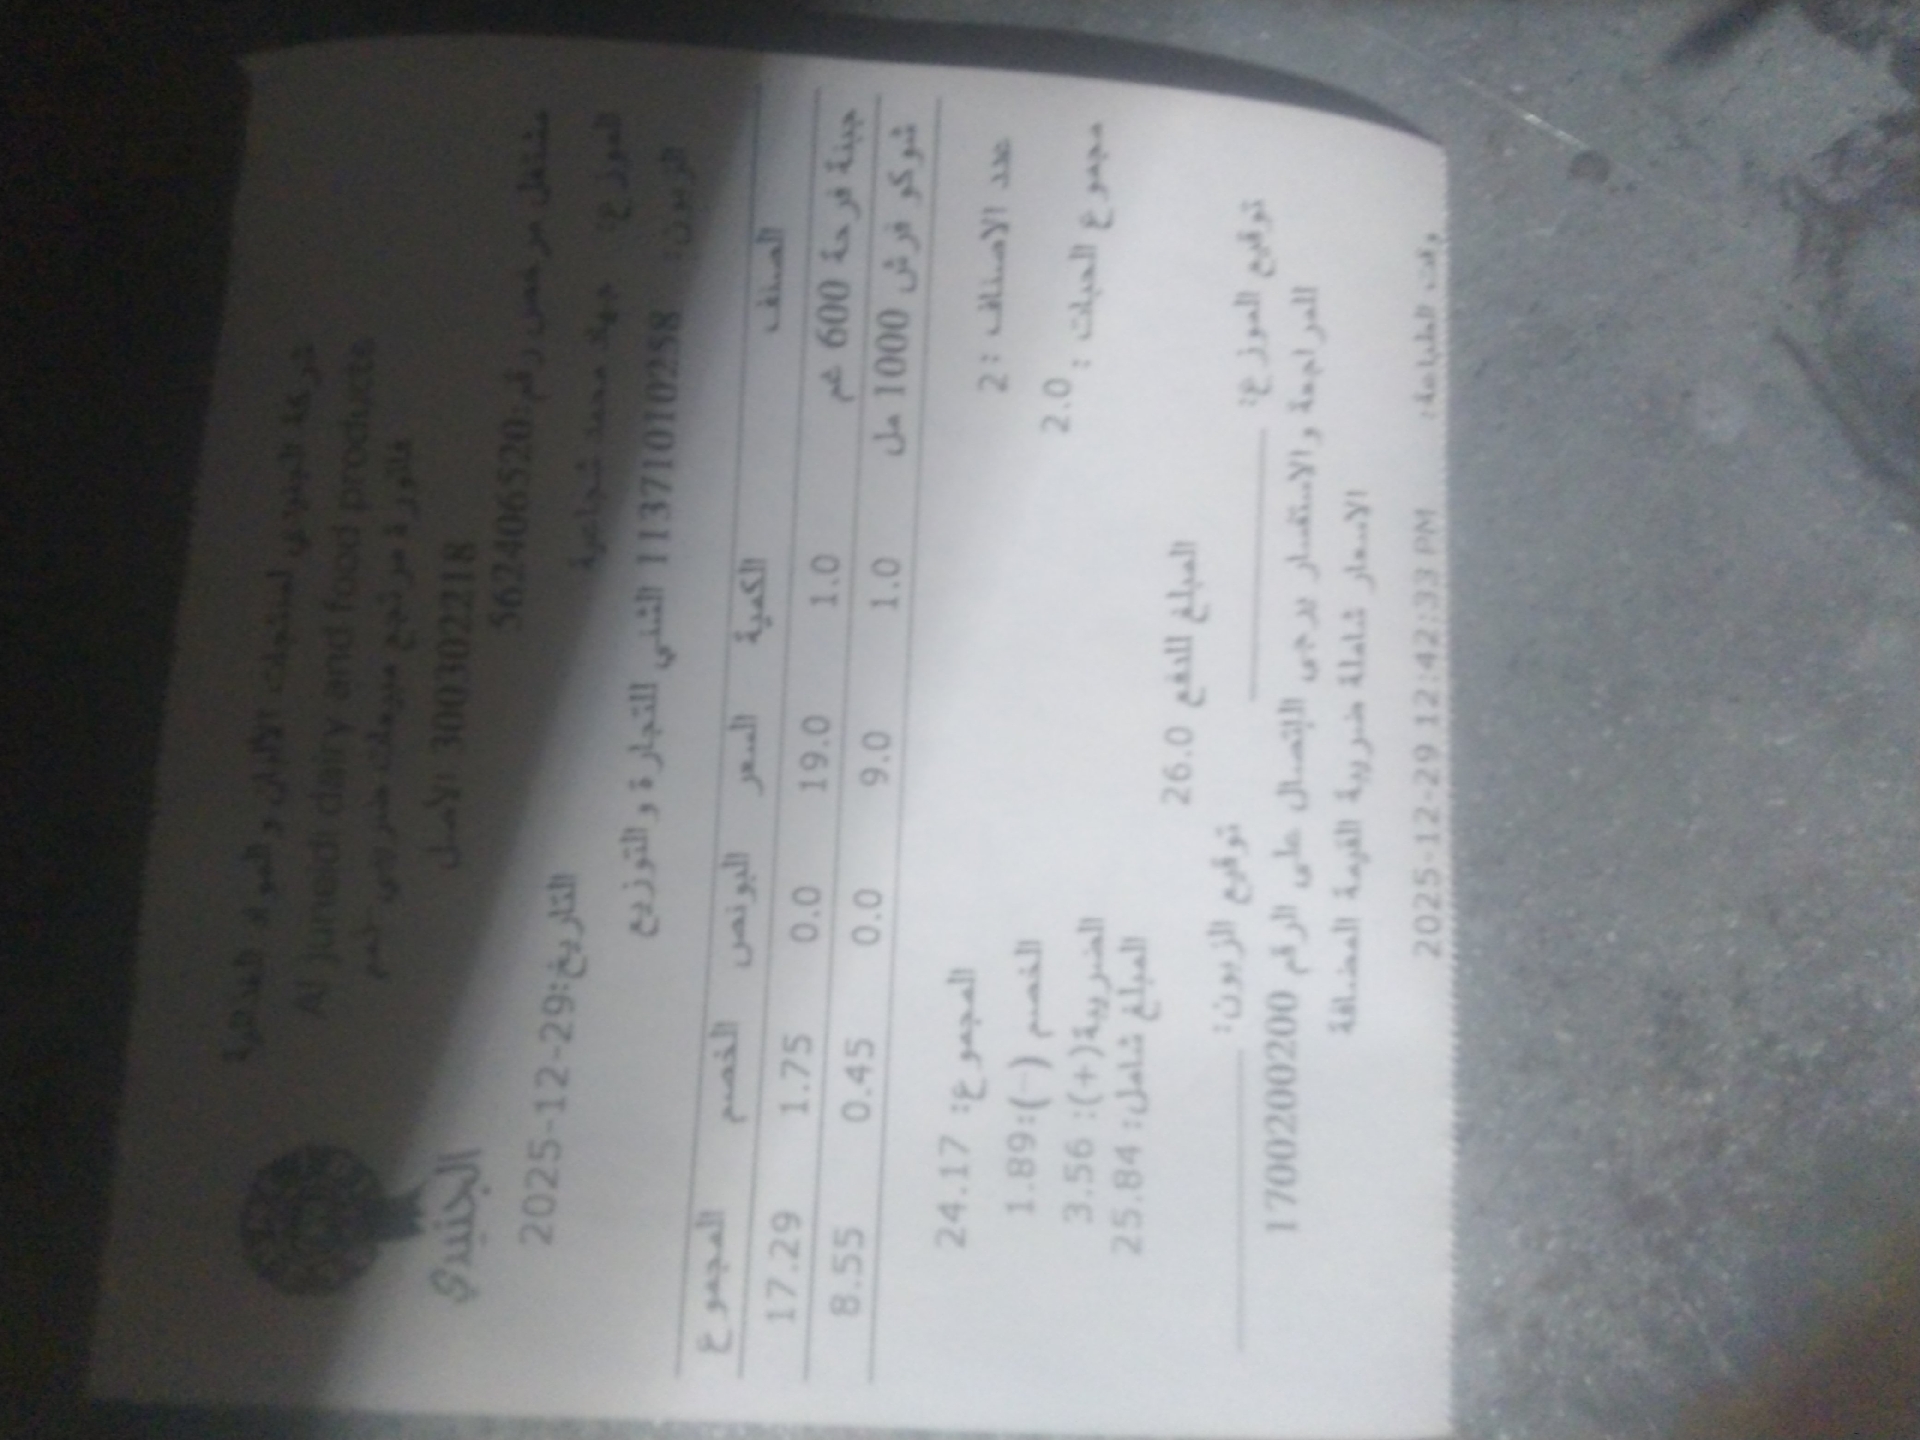 شركة الجنيدي لمنتجات الالبان والمواد الغذائية
Al Juneidi dairy and food products
فاتورة مرتجع مبيعات ضريبي
300302218 الاصل
الجنيدي
مشتغل مرخص رقم:562406520
التاريخ:2025-12-29
الموزع: جهاد محمد
الزبون: 1137101010258 للتجارة و التوزيع
الصنف الكمية السعر البونص الخصم المجموع
جبنة فرحة 600 غم 1.0 19.0 0.0 1.75 17.29
شوكو فرش 1000 مل 1.0 9.0 0.0 0.45 8.55
عدد الاصناف :2 المجموع: 24.17
مجموع الحبات : 2.0 الخصم (-):1.89
الضريبة(+): 3.56
المبلغ شامل: 25.84
المبلغ للدفع 26.0
توقيع الموزع: توقيع الزبون:
للمراجعة والاستفسار يرجى الاتصال على الرقم 1700200200
الاسعار شاملة ضريبة القيمة المضافة
وقت الطباعة: 2025-12-29 12:42:33 PM